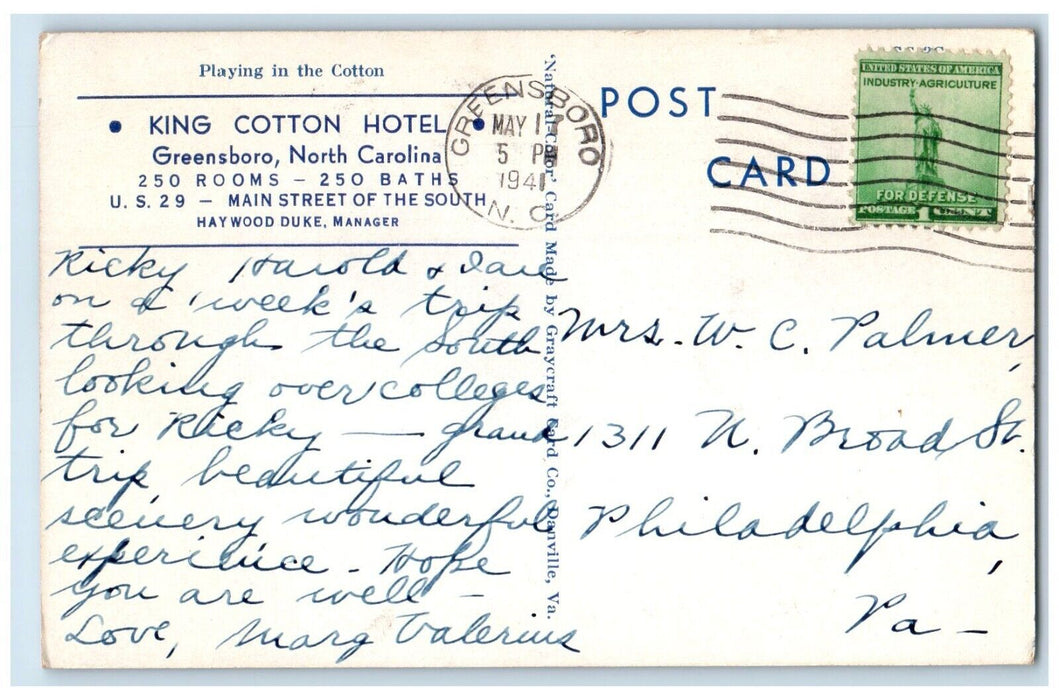 Playing in the Cotton
• KING COTTON HOTEL •
Greensboro, North Carolina
250 ROOMS — 250 BATHS
U. S. 29 — MAIN STREET OF THE SOUTH
HAYWOOD DUKE, MANAGER
Ricky Harold &
on a week's trip
through the South
looking over colleges
for Ricky — grand
trip, beautiful
scenery wonderful
experience - Hope
you are well -
Love, Marg Valerius
"Natural Color" Card Made by Graycraft Card Co., Danville, Va.
GREENSBORO
MAY
5 PM
1941
N. C.
POST
CARD
UNITED STATES OF AMERICA
INDUSTRY·AGRICULTURE
FOR DEFENSE
POSTAGE 1 CENT
Mrs. W. C. Palmer,
1311 N. Broad St.
Philadelphia,
Pa —